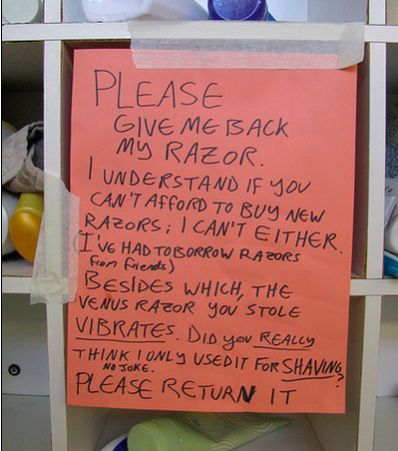 PLEASE
GIVE ME BACK
MY RAZOR.
I UNDERSTAND IF YOU
CAN'T AFFORD TO BUY NEW
RAZORS; I CAN'T EITHER.
(I'VE HAD TO BORROW RAZORS
from friends)
BESIDES WHICH, THE
VENUS RAZOR YOU STOLE
VIBRATES. DID YOU REALLY
THINK I ONLY USED IT FOR SHAVING?
NO JOKE.
PLEASE RETURN IT